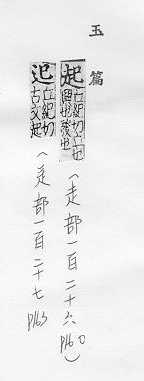 玉篇
起 丘紀切立也興也發也 (走部一百二十六 P160)
𨑔 丘紀切古文起 (辵部一百二十七 P163